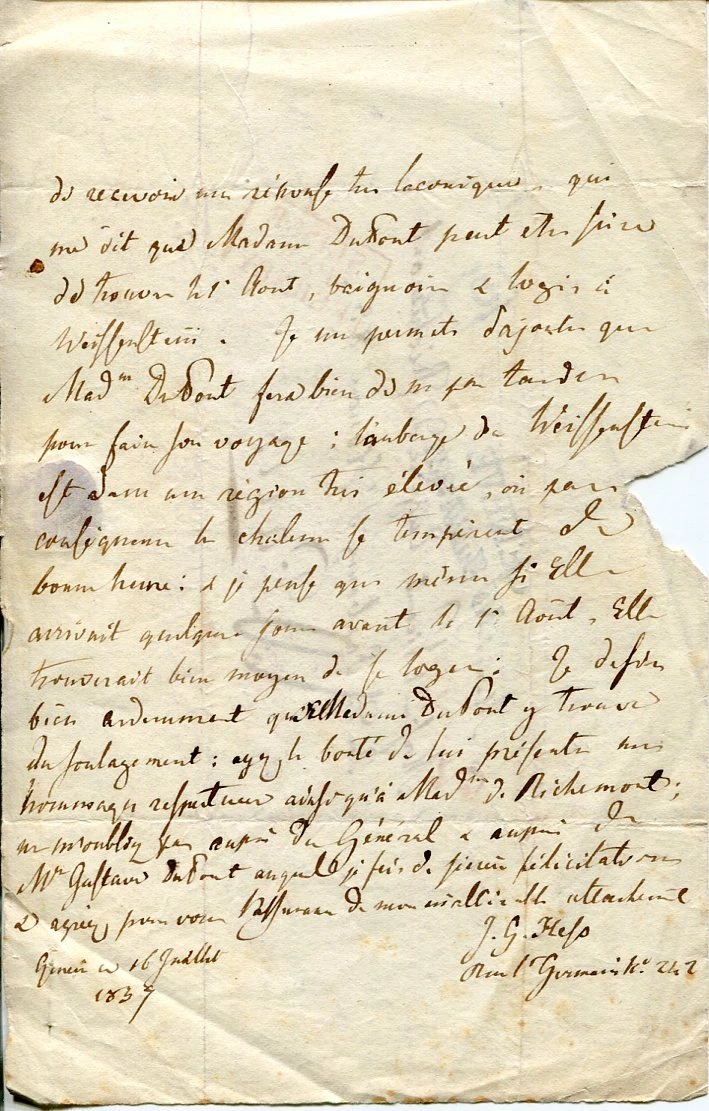 de recevoir une réponse très laconique, qui
me dit que Madame DuPont peut être sûre
de trouver le 1r Aout, baignoire & logis à
Weissenstein. Je me permets d'ajouter que
Madme DuPont fera bien de ne pas tarder
pour faire son voyage ; l'auberge du Weissenstein
est dans une région très élevée, où par
conséquent les chaleurs se tempèrent de
bonne heure : & je pense que même si Elle
arrivait quelques jours avant le 1r Août, Elle
trouverait bien moyen de se loger : Je desire
bien ardemment que Madame DuPont y trouve
du soulagement ; ayez la bonté de lui présenter mes
hommages respectueux ainsi qu'à Madme de Richemont ;
ne m'oubliez pas auprès du Général & auprès de
Mr Gustave DuPont auquel je fais de sincères félicitations
& agréez pour vous l'assurance de mon inaltérable attachement
J. G. Hess
Genève ce 16 Juillet
Rue St Germain No. 242
1837